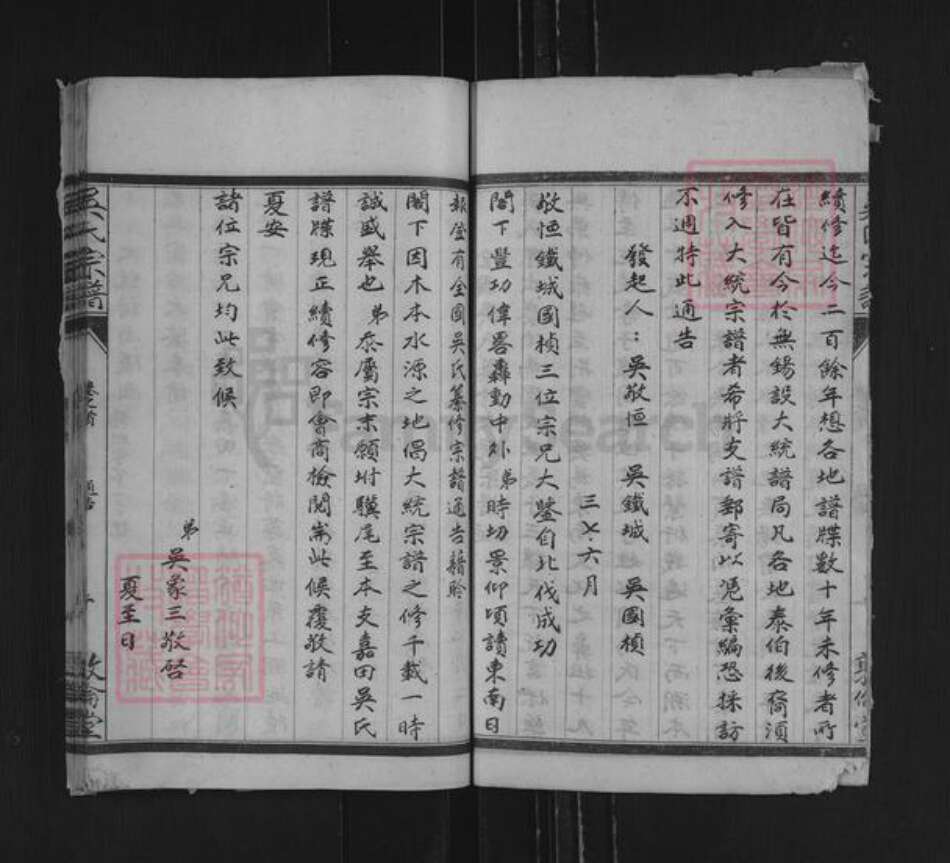 續修迄今二百餘年想各地譜牒數十年未修者所
在皆有今於無錫設大統譜局凡各地泰伯後裔須
修入大統宗譜者希將支譜郵寄以凭彙編恐採訪
不週特此通告
發起人：吳敬恒 吳鐵城 吳國楨
三六、六月
敬恒鐵城國楨三位宗兄大鑒自北伐成功
閣下豐功偉畧轟動中外弟時切景仰頃讀東南日
報登有全國吳氏纂修宗譜通告藉聆
閣下因木本水源之地倡大統宗譜之修千載一時
誠盛舉也弟忝屬宗末願坿驥尾至本支嘉田吳氏
譜牒現正續修容即會商檢閱耑此候覆敬請
夏安
諸位宗兄均此致候
弟吳象三敬啓
夏至日
吳氏宗譜
卷之首
通告
敦倫堂